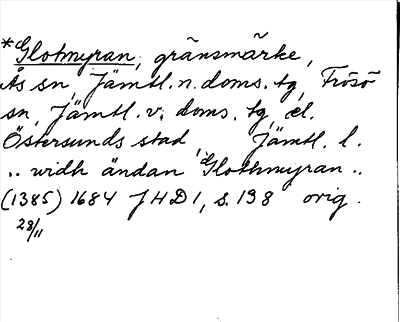 *Glotmyran, gränsmärke,
Ås sn, Jämtl. n. doms. tg, Frösö
sn, Jämtl. v. doms. tg, el.
Östersunds stad, Jämtl. l.
.. widh ändan Glothmyran ..
(1385) 1684 JHD 1, s. 198 orig.
28/11